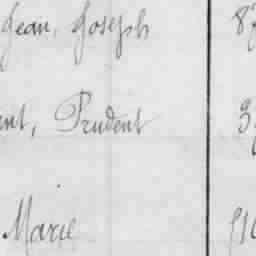 Jean, Joseph
ent, Prudent
Marie